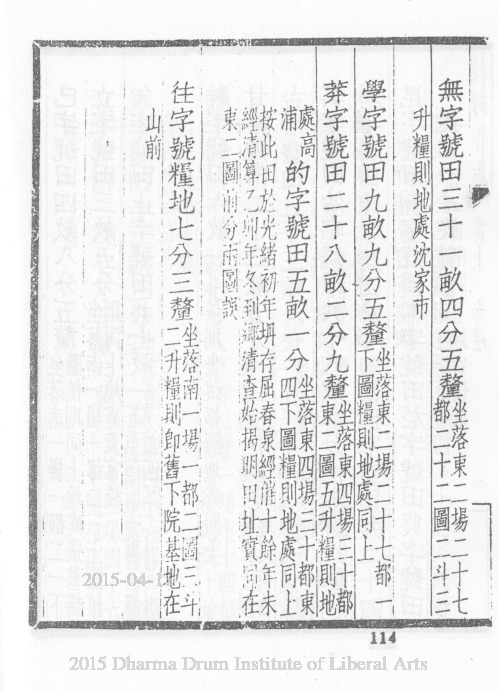 無字號田三十一畝四分五釐坐落東二場二十七
都二十二圖二斗三
升糧則地處沈家市
學字號田九畝九分五釐坐落東二場二十七都一
下圖糧則地處同上
莽字號田二十八畝二分九釐坐落東四場三十都
東二圖五升糧則地
處高
浦 的字號田五畝一分坐落東四場三十都東
四下圖糧則地處同上
按此田於光緒初年坍存屈春泉經催十餘年未
經清算乙卯年冬到鄉清查始揭明田址實同在
東二圖前分兩圖誤
往字號糧地七分三釐坐落南一場一都二圖三斗
二升糧則即舊下院基地在
山前
114
2015-04-1
2015 Dharma Drum Institute of Liberal Arts